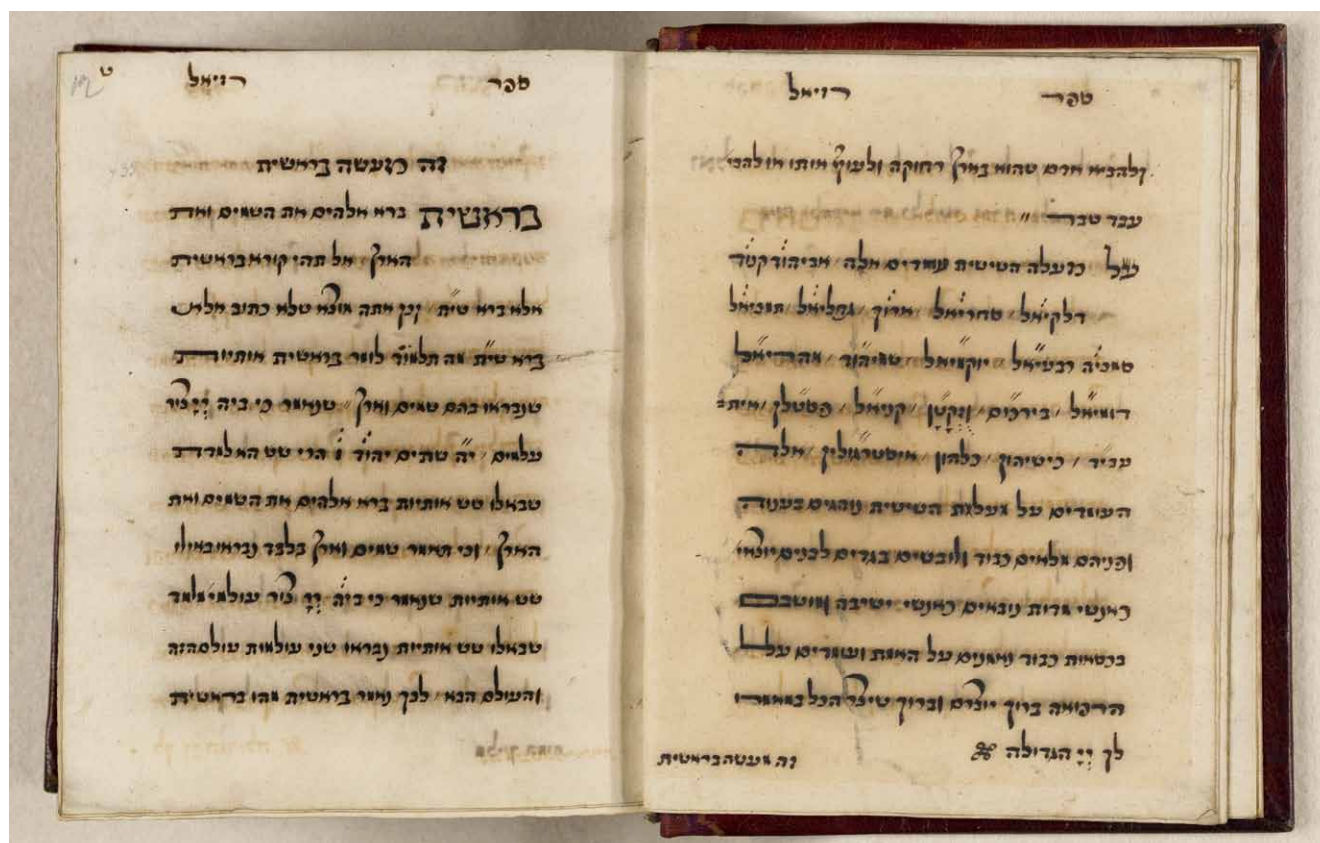 ספר רזיאל
ולהביא אדם שהוא בארץ רחוקה ולעוץ אותו או להבי
עבד שברח
על מעלה הששית עומדים אלה אביהוד קטר
דלקיאל סחריאל ארוך גהליאל תמכיאל
סמכיה רבעיאל יוקמיאל שמיהוד מהריאל
דומיאל כירכום ונקטן קניאל פסטלן אית
עביר כישיהון כלהון איסטרגולין אלה
העומדים על מעלות הששית נוהגים בענוה
ופניהם מלאים כבוד ולובשים בגדים לבנים יוצאי
כאנשי מדות נובאים כאנשי ישיבה ומושבם
בכסאות כבוד נאמנים על האמת ועומדים על
הרפואה ברוך יוצרם וברוך שיצר הכל במאמרו
לך יְיָ הגדולה
זה מעשה בראשית
ט
12
ספר רזיאל
זה מעשה בראשית
בראשית ברא אלהים את השמים ואת
הארץ אל תהי קורא בראשית
אלא ברא ש״ת וכן אתה מוצא שלא כתוב אלא
ברא ש״ת מה תלמוד לומר בראשית אותיות
שנבראו בהם שמים וארץ שנאמר כי ביה יְיָ ציר
עולמים י״ה שתים יהוד ו הרי שש הא למדת
שבאלו שש אותיות ברא אלהים את השמים ואת
הארץ וכי תאמר שמים וארץ בלבד נבראו באילו
שש אותיות שנאמר כי ביה יְיָ ציר עולמי׳ מלמד
שבאלו שש אותיות נבראו שני עולמות עולם הזה
והעולם הבא לכך נאמר בראשית מהו בראשית